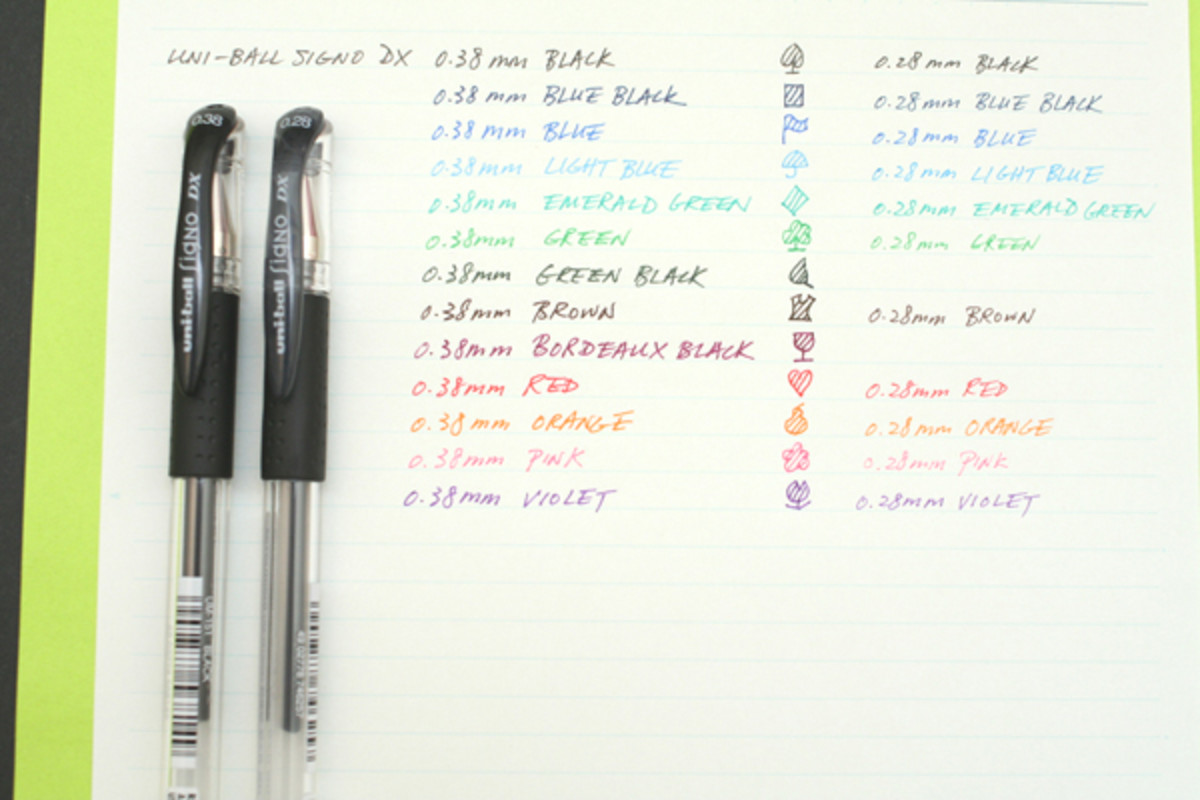 UNI-BALL SIGNO DX 0.38 mm BLACK 0.28 mm BLACK
0.38 mm BLUE BLACK 0.28 mm BLUE BLACK
0.38 mm BLUE 0.28 mm BLUE
0.38 mm LIGHT BLUE 0.28 mm LIGHT BLUE
0.38 mm EMERALD GREEN 0.28 mm EMERALD GREEN
0.38 mm GREEN 0.28 mm GREEN
0.38 mm GREEN BLACK
0.38 mm BROWN 0.28 mm BROWN
0.38 mm BORDEAUX BLACK
0.38 mm RED 0.28 mm RED
0.38 mm ORANGE 0.28 mm ORANGE
0.38 mm PINK 0.28 mm PINK
0.38 mm VIOLET 0.28 mm VIOLET
0.38
uni-ball SIGNO DX
UM-151 BLACK
0.28
uni-ball SIGNO DX